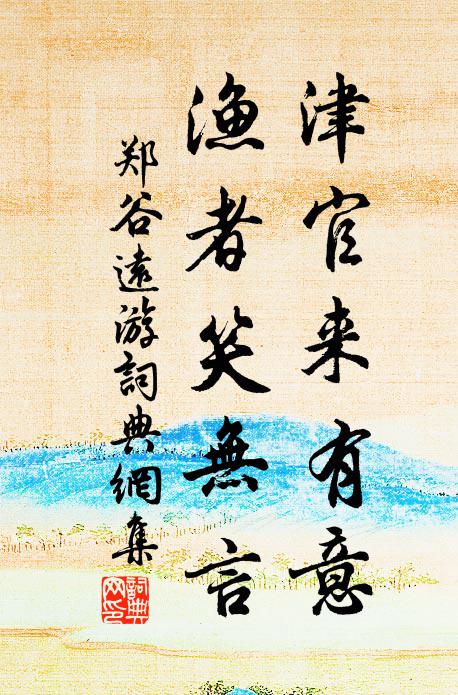 津官来有意
渔者笑無言
郑谷遠游詞典網集
詞典网印